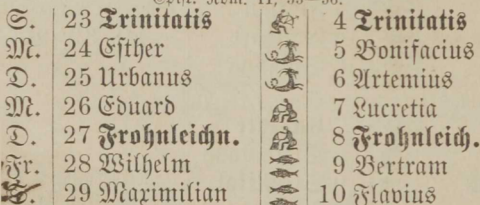 S. 23 Trinitatis 4 Trinitatis
M. 24 Esther 5 Bonifacius
D. 25 Urbanus 6 Artemius
M. 26 Eduard 7 Lucretia
D. 27 Frohnleichn. 8 Frohnleich.
Fr. 28 Wilhelm 9 Bertram
S. 29 Maximilian 10 Flavius